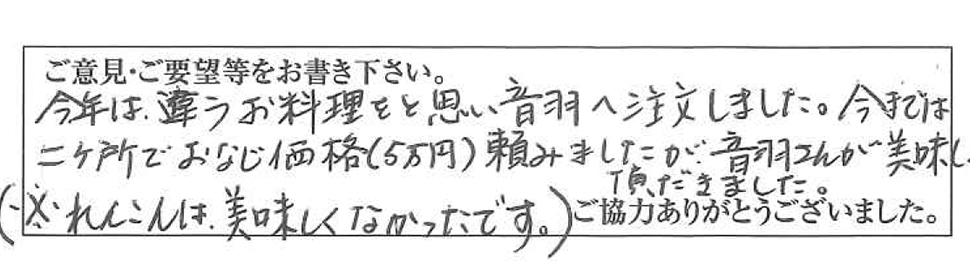 ご意見・ご要望等をお書き下さい。
今年は、違うお料理をと思い音羽へ注文しました。今までは
二ヶ所でおなじ価格(5万円)頼みましたが、音羽さんが美味し
頂だきました。
(※れんこんは、美味しくなかったです。)ご協力ありがとうございました。